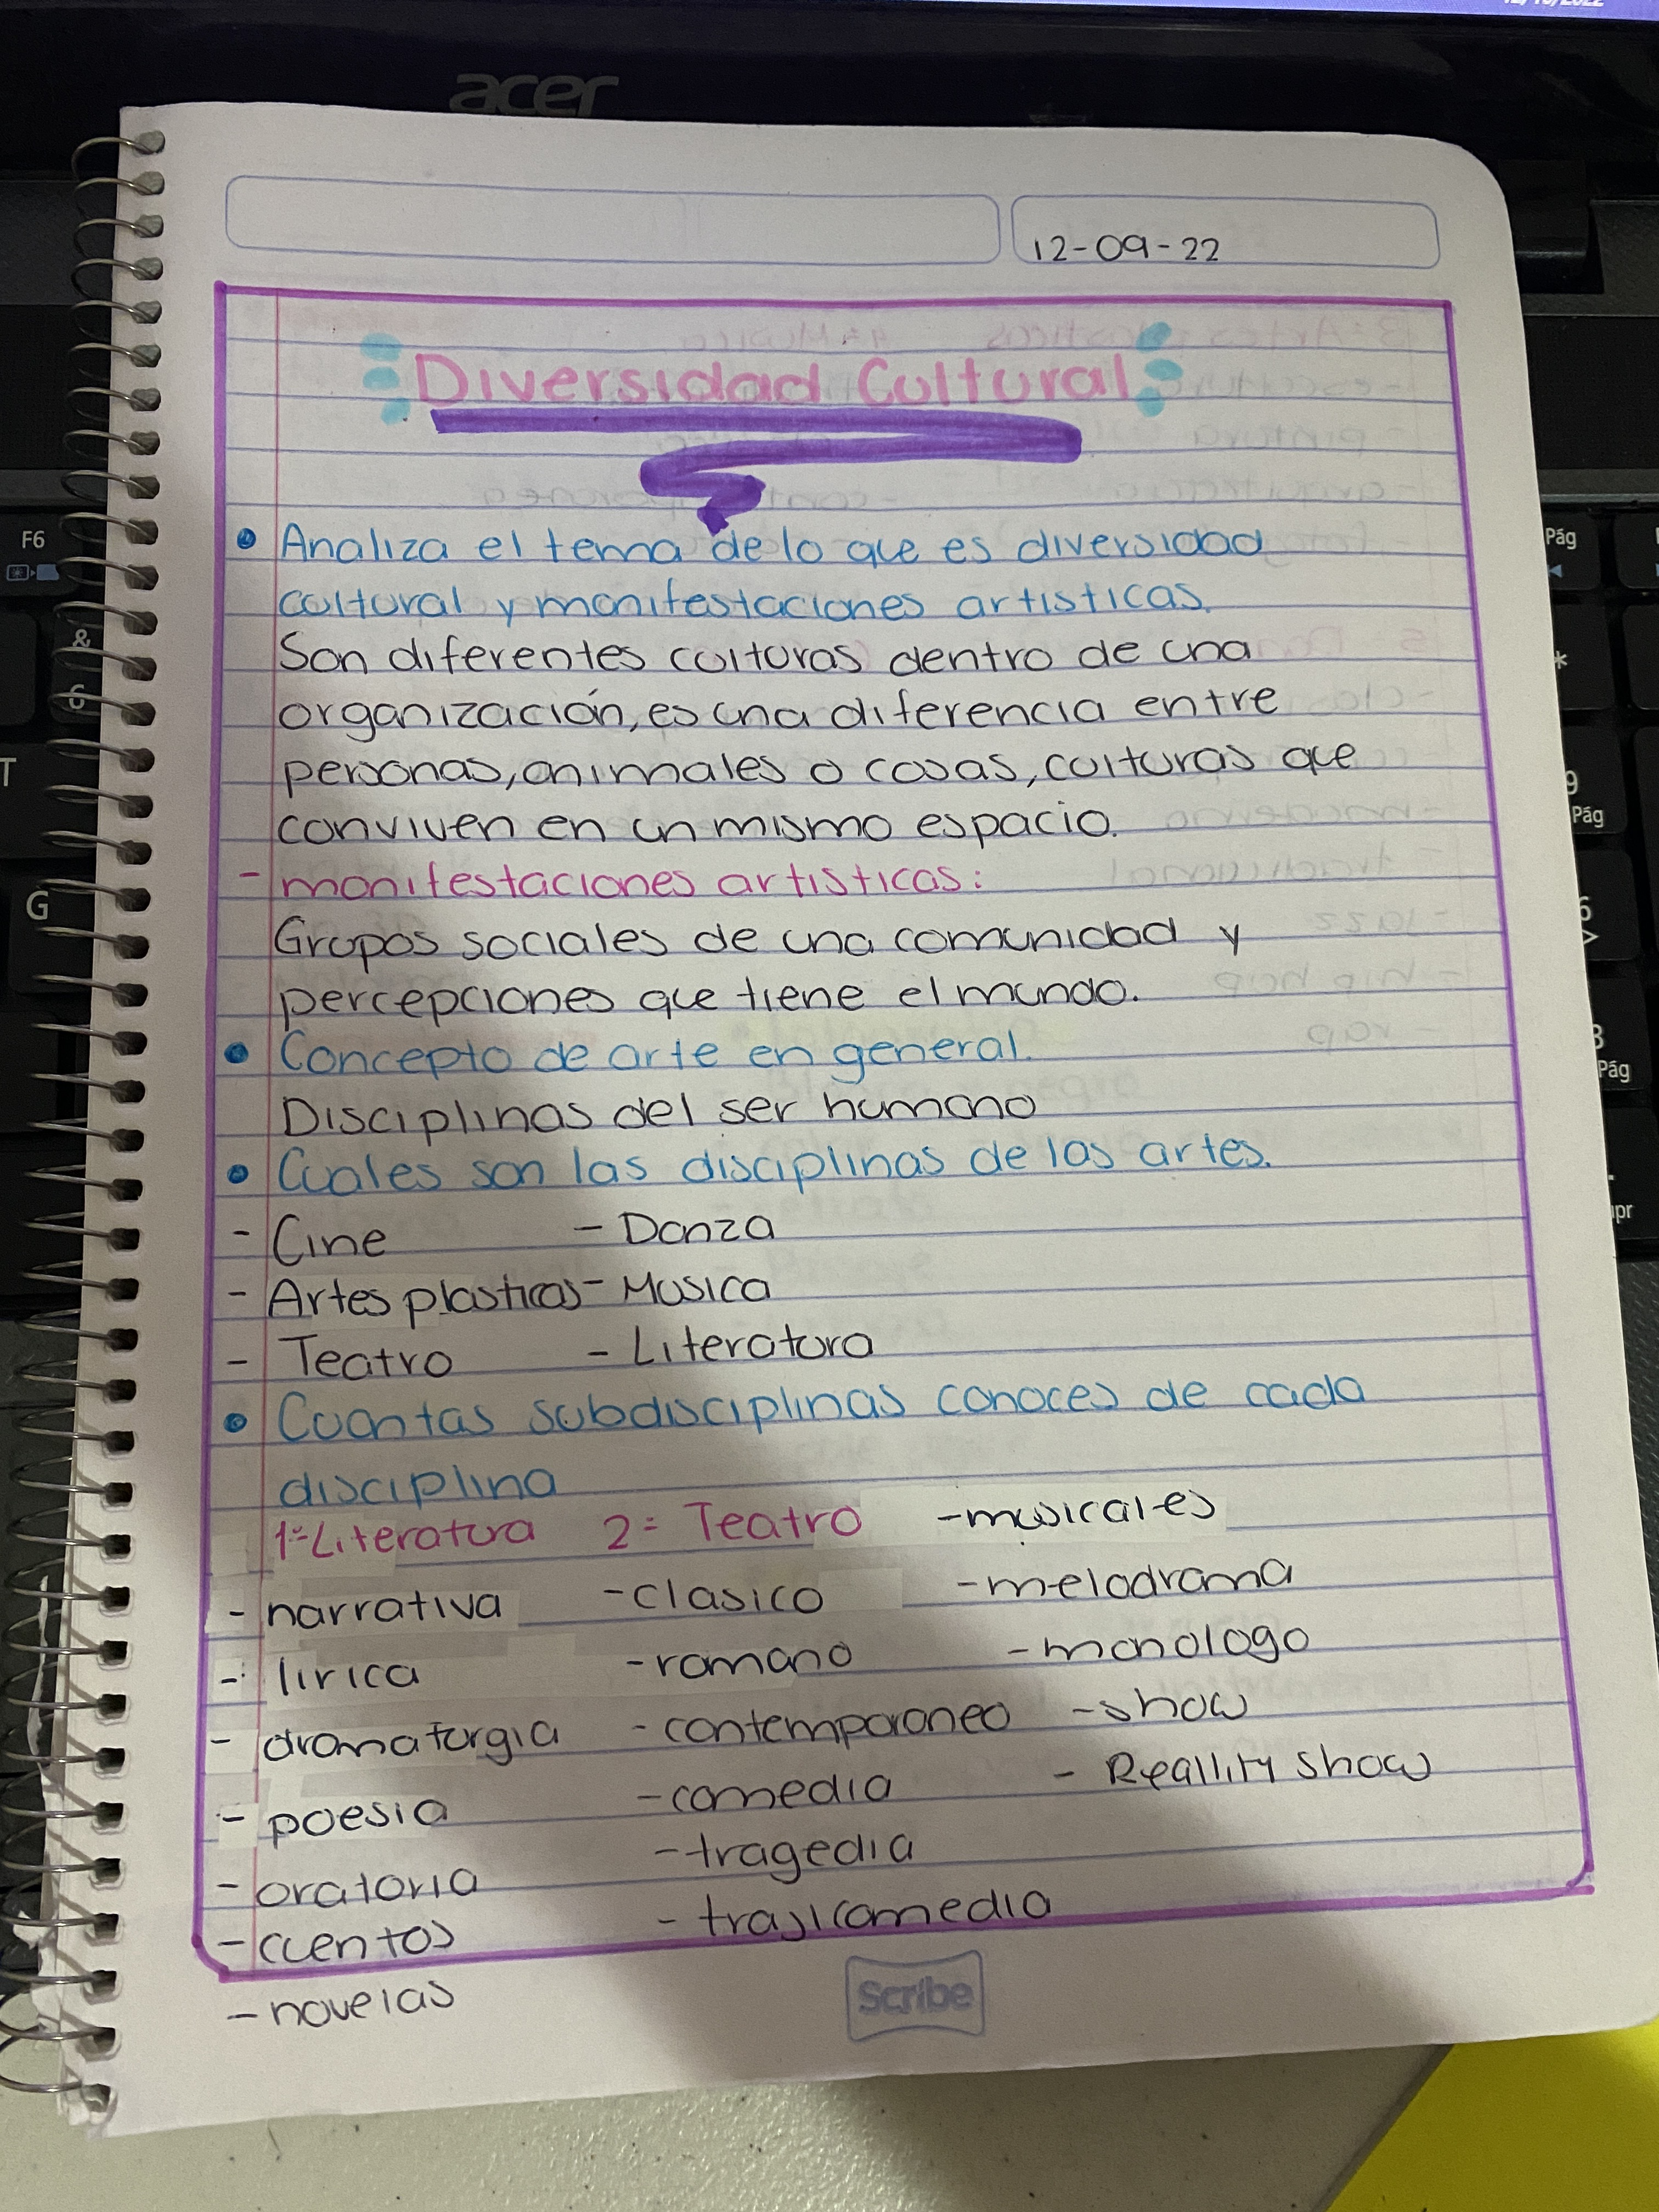 acer
12-09-22
Diversidad Cultural
• Analiza el tema de lo que es diversidad
cultural y manifestaciones artisticas.
Son diferentes culturas dentro de una
organización, es una diferencia entre
personas, animales o cosas, culturas que
conviven en un mismo espacio.
- manifestaciones artisticas:
Grupos sociales de una comunidad y
percepciones que tiene el mundo.
• Concepto de arte en general.
Disciplinas del ser humano
• Cuales son las disciplinas de las artes.
- Cine - Danza
- Artes plasticas - Musica
- Teatro - Literatura
• Cuantas subdisciplinas conoces de cada
disciplina
1=Literatura 2= Teatro - musicales
- narrativa - clasico - melodrama
- lirica - romano - monologo
- dramaturgia - contemporaneo - show
- poesia - comedia - Reallity show
- oratoria - tragedia
- cuentos - trajicomedia
- novelas
Scribe
F6
&
6
T
G
Pág
*
9
Pág
6
3
Pág